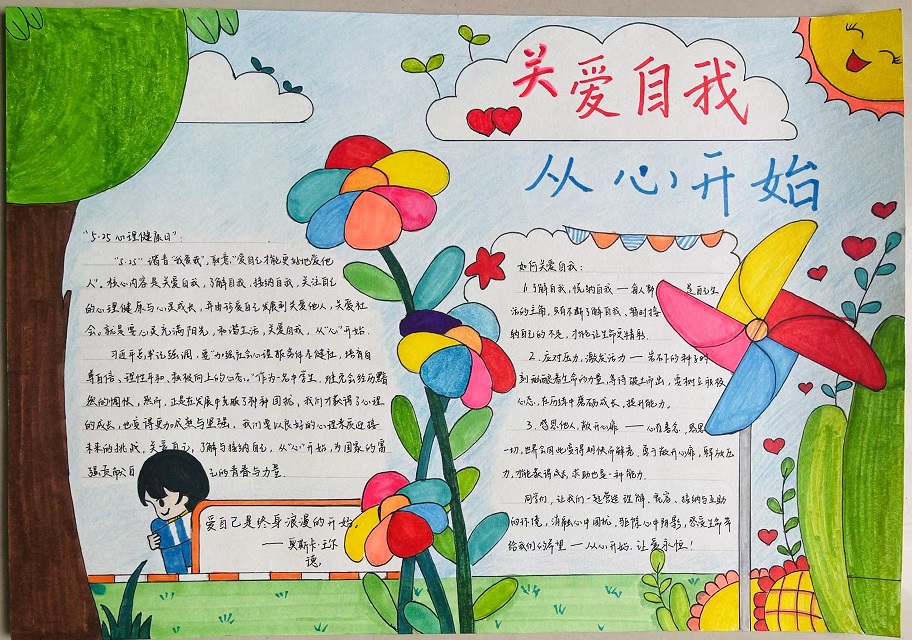 关爱自我
从心开始
"5·25心理健康日":
"5·25"谐音"我爱我",取意"爱自己才能更好地爱他
人".核心内容是关爱自我,了解自我,接纳自我,关注自己
的心理健康与心灵成长,并由珍爱自己发展到关爱他人,关爱社
会。就是要心灵充满阳光,和谐生活,关爱自我,从"心"开始.
习近平总书记强调,要"加强社会心理服务体系建设,培育自
尊自信、理性平和、积极向上的心态。"作为一名中学生,难免会经历黯
然的惆怅,然而,正是在发展中克服了种种困扰,我们才获得了心理
的成长,也变得更加成熟与坚强,我们要以良好的心理素质迎接
未来的挑战,关爱自己,了解与接纳自己,从"心"开始,为国家的富
强贡献自 己的青春与力量
爱自己是终身浪漫的开始。
——奥斯卡·王尔
德
如何关爱自我:
1.了解自我,悦纳自我— 是自己生
活的主角,只有不断了解自我、
纳自己的不足,才能让生命更精彩.
2.应对压力,激发活力—
到 着生命的力量,等待破土而出,要树立积极
心态,在历练中磨砺成长,提升能力。
3.感恩他人,敞开心扉—心有善念,感恩
一切,世界会因此变得明快而鲜亮.勇于敞开心扉,释放压
力,才能获得成长,求助也是一种能力.
同学们,让我们一起营造理解、宽容、接纳与互助
的环境,消融心中困扰,驱除心中阴影,感受生命带
给我们的希望—从心开始,让爱永恒!